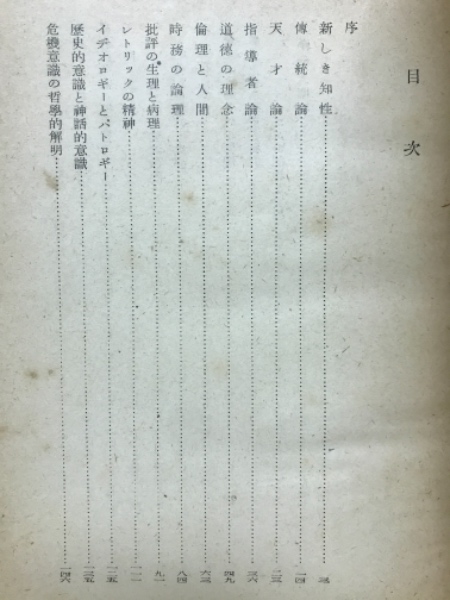 目次
序
新しき知性……三
傳統論……一四
天才論……二三
指導者論……三六
道德の理念……四九
倫理と人間……六三
時務の論理……八四
批評の生理と病理……九一
レトリックの精神……一一一
イデオロギーとパトロギー……一二五
歷史的意識と神話的意識……一三五
危機意識の哲學的解明……一四六